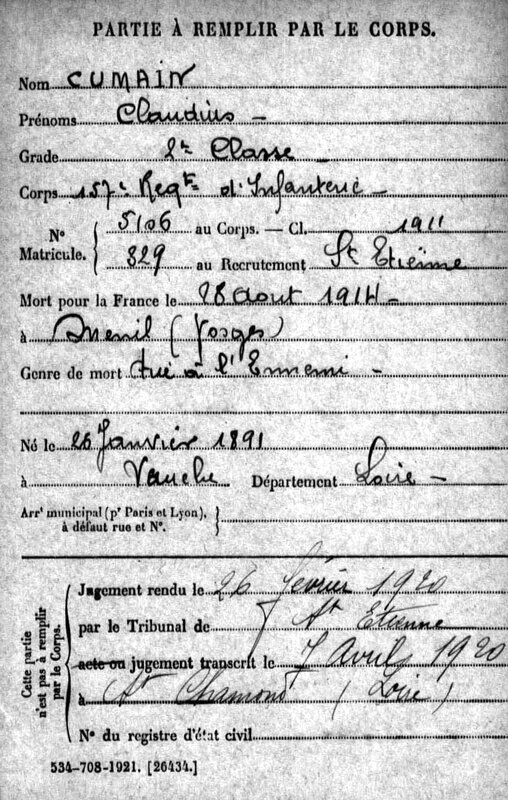 PARTIE À REMPLIR PAR LE CORPS.
Nom CUMAIN
Prénoms Claudius –
Grade 2e Classe –
Corps 157e Regt d'Infanterie –
N° Matricule. { 5106 au Corps. — Cl. 1911
329 au Recrutement St Etienne
Mort pour la France le 28 aout 1914 –
à Menil (Vosges)
Genre de mort tué à l'Ennemi –
Né le 26 Janvier 1891
à Département Loire –
Arrt municipal (pr Paris et Lyon), à défaut rue et N°. }
Cette partie n'est pas à remplir par le Corps. {
Jugement rendu le 26 février 1920
par le Tribunal de St Etienne
acte ou jugement transcrit le 7 Avril 1920
à St Chamond (Loire)
N° du registre d'état civil
534-708-1921. [26434.]